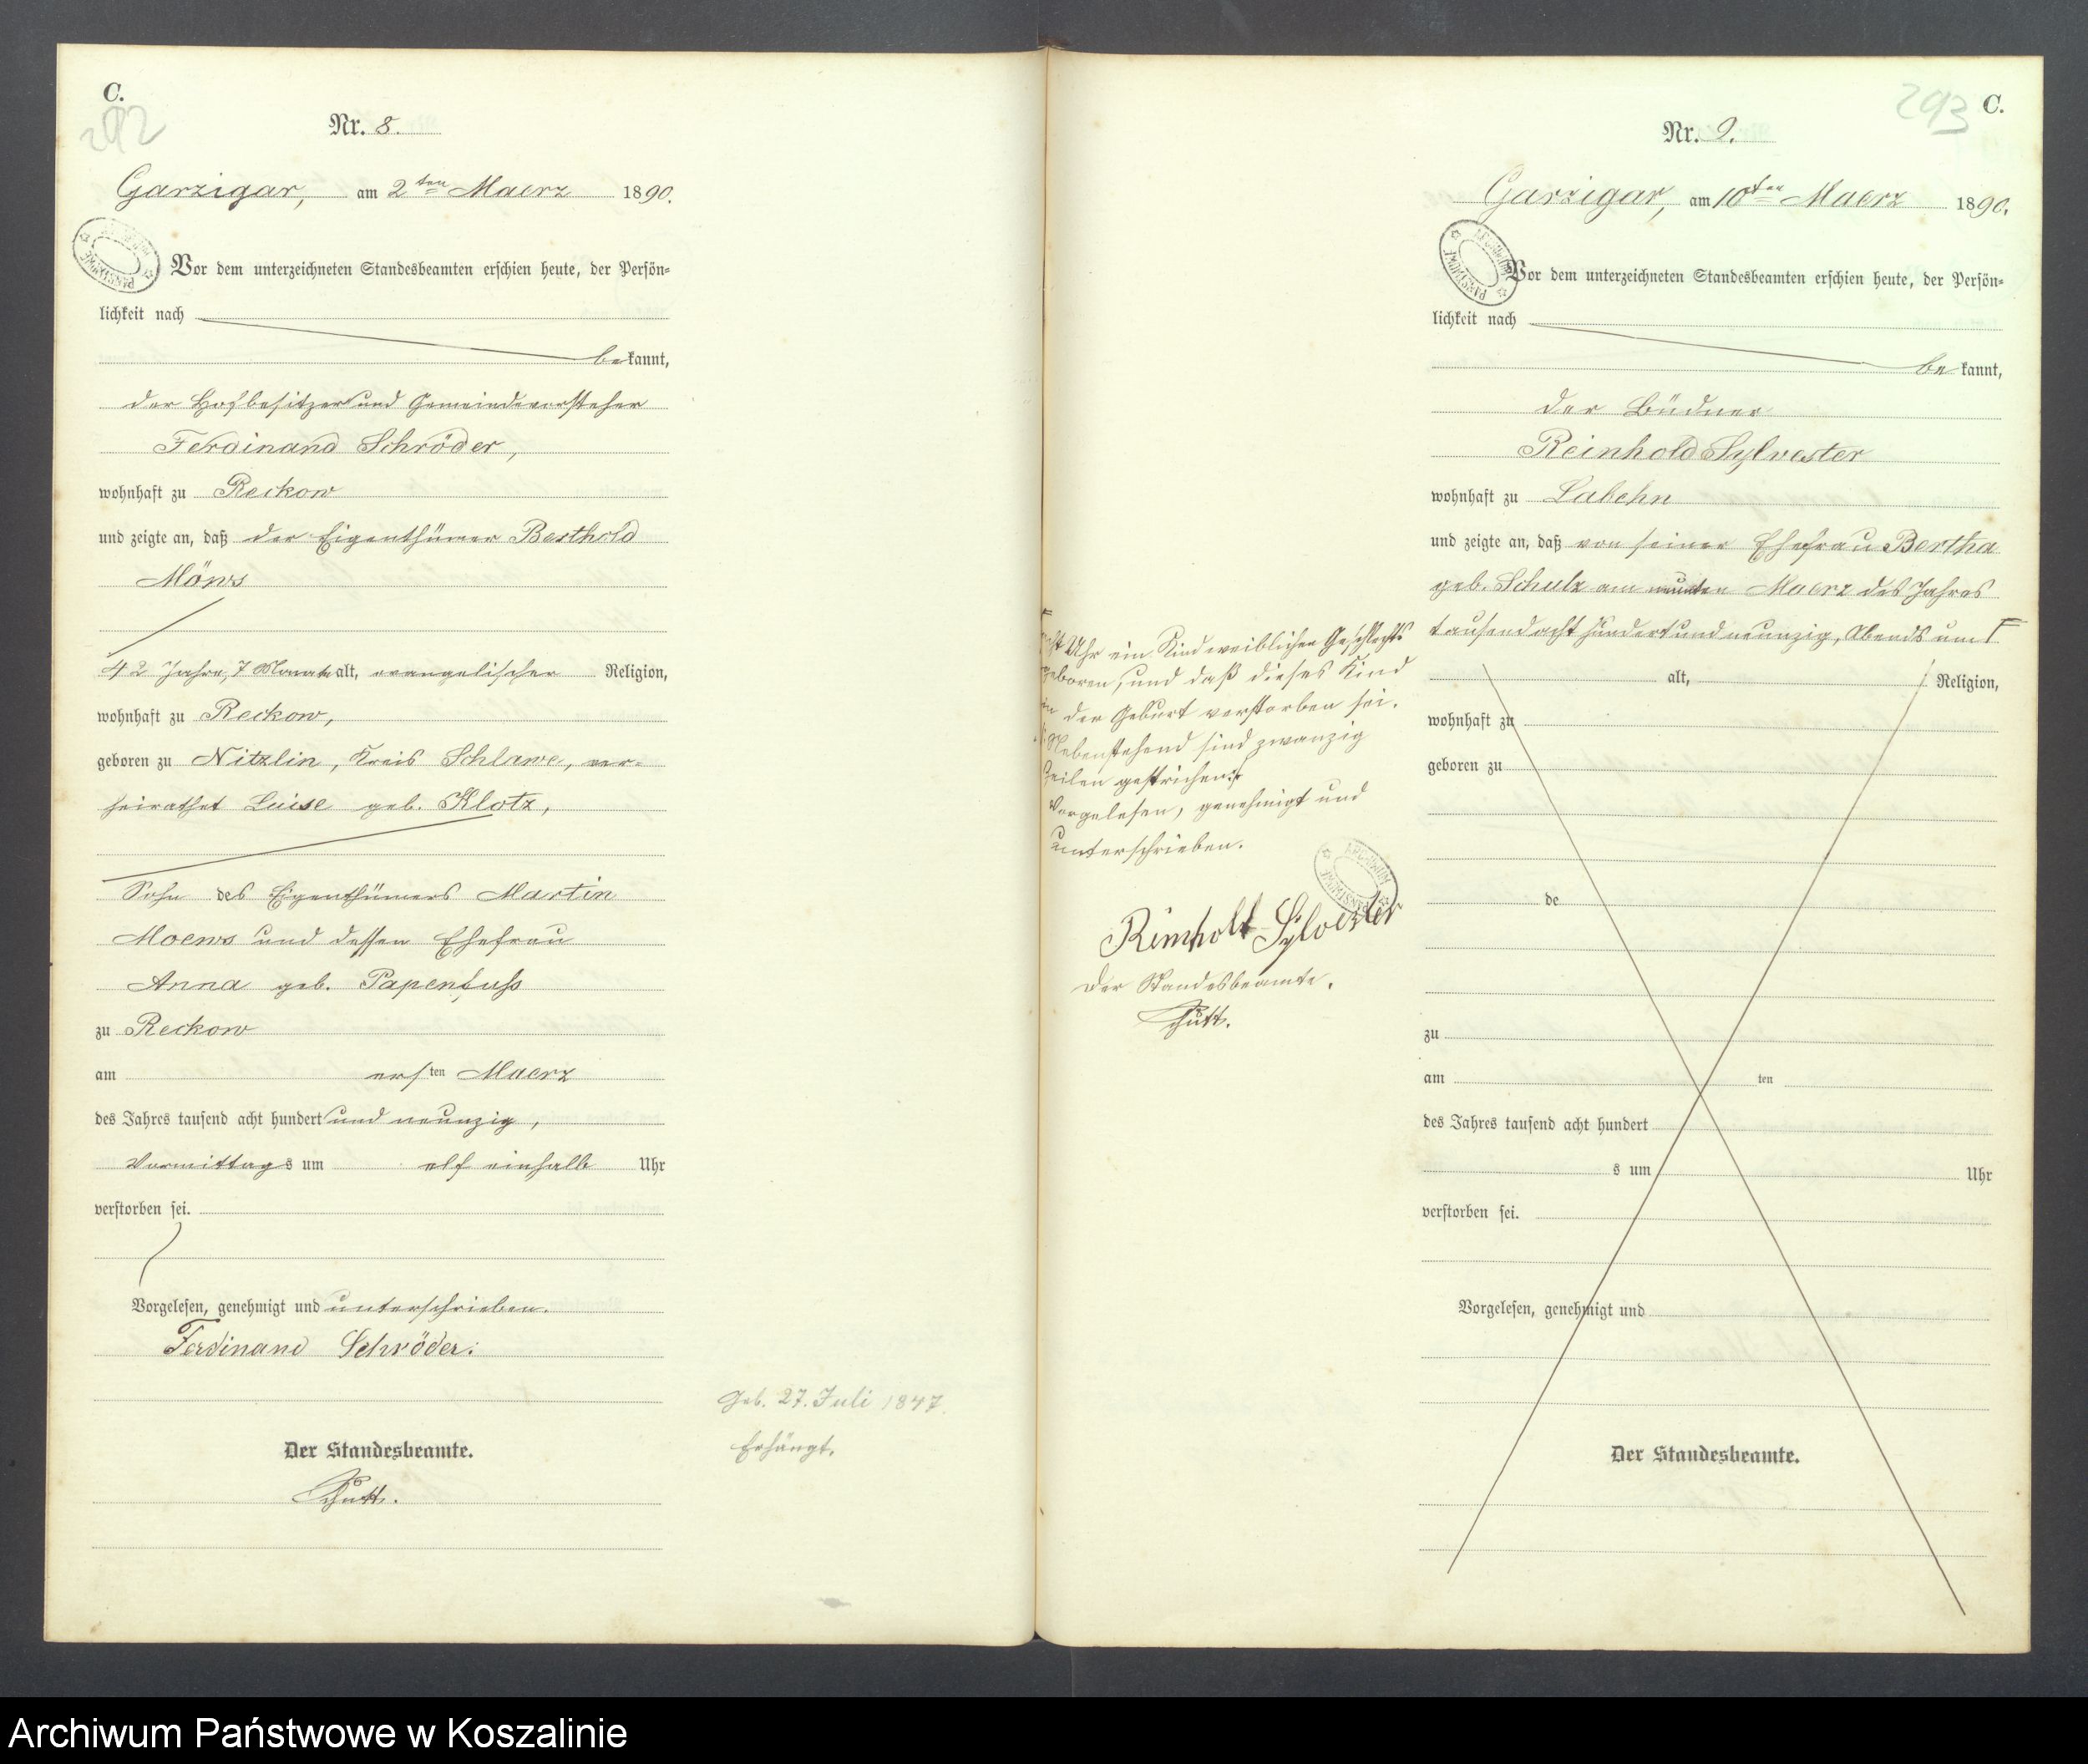 C.
292
Nr. 8.
Garzigar, am 2ten Maerz 1890.
Vor dem unterzeichneten Standesbeamten erschien heute, der Persön-
lichkeit nach
bekannt,
der Hofbesitzer und Gemeindevorsteher
Ferdinand Schröder,
wohnhaft zu Reckow
und zeigte an, daß der Eigenthümer Berthold
Möws
42 Jahre, 7 Monate alt, evangelischer Religion,
wohnhaft zu Reckow,
geboren zu Nitzlin, Kreis Schlawe, ver-
heirathet Luise geb. Klotz,
Sohn des Eigenthümers Martin
Moews und dessen Ehefrau
Anna geb. Papenfuss
zu Reckow
am ersten Maerz
des Jahres tausend acht hundert und neunzig,
Vormittags um elf einhalb Uhr
verstorben sei.
Vorgelesen, genehmigt und unterschrieben.
Ferdinand Schröder.
Der Standesbeamte.
Schutt.
Geb. 27. Juli 1847.
Erhängt.
293 C.
Nr. 9.
Garzigar, am 10ten Maerz 1890.
ARCHIWUM PAŃSTWOWE
Vor dem unterzeichneten Standesbeamten erschien heute, der Persön-
lichkeit nach
bekannt,
der Büdner
Reinhold Sylvester
wohnhaft zu Labehn
und zeigte an, daß von seiner Ehefrau Bertha
geb. Schulz am neunten Maerz des Jahres
tausend acht hundert und neunzig, Abends um
acht Uhr ein Kind weiblichen Geschlechts
geboren, und daß dieses Kind
in der Geburt verstorben sei.
Nebenstehend sind zwanzig
Zeilen gestrichen.
Vorgelesen, genehmigt und
unterschrieben.
Reinholt Sylvester
Der Standesbeamte.
Schutt.
alt, Religion,
wohnhaft zu
geboren zu
de
zu
am ten
des Jahres tausend acht hundert
s um Uhr
verstorben sei.
Vorgelesen, genehmigt und
Der Standesbeamte.
Archiwum Państwowe w Koszalinie